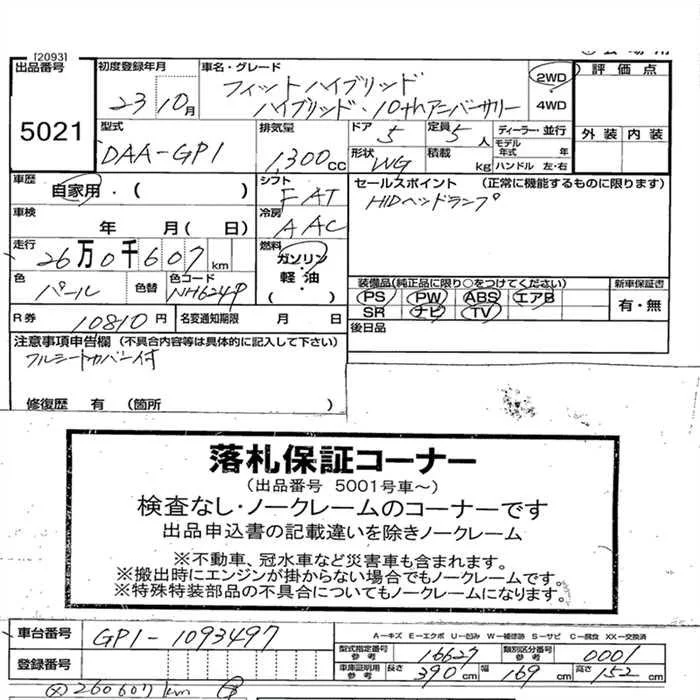 [2093]
出品番号
5021
初度登録年月
23 10月
車名・グレード
フィットハイブリッド
ハイブリッド・10thアニバーサリー
2WD
4WD
評価点
外装 内装
型式
DAA-GP1
排気量
1,300cc
ドア
5
定員
5人
形状
WG
積載
kg
ディーラー・並行
モデル年式 年
ハンドル 左・右
車歴
自家用・( )
シフト
FAT
車検
年 月( 日)
冷房
AAC
走行
26万0千607km
燃料
ガソリン・軽油
( )
色
パール
色替
色コード
NH624P
セールスポイント (正常に機能するものに限ります)
HIDヘッドランプ
装備品(純正品に限り○をつけてください)
PS PW ABS エアB
SR ナビ TV
新車保証書
有・無
後日品
R券
10810円
名変通知期限 月 日
注意事項申告欄 (不具合内容等は具体的に記入して下さい)
フルシートカバー付
修復歴 有 (箇所 )
落札保証コーナー
(出品番号 5001号車～)
検査なし・ノークレームのコーナーです
出品申込書の記載違いを除きノークレーム
※不動車、冠水車など災害車も含まれます。
※搬出時にエンジンが掛からない場合でもノークレームです。
※特殊特装部品の不具合についてもノークレームになります。
車台番号
GP1-1093497
登録番号
A－キズ E－エクボ U－凹み W－補修跡 S－サビ C－腐食 XX－交換済
型式指定番号
参考
16627
類別区分番号
参考
0001
車庫証明用
参考
長さ
390cm
幅
169cm
高さ
152cm
260607km